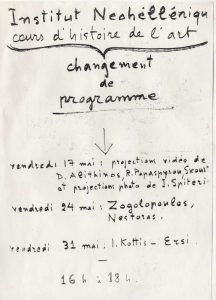 Institut Neohéllénique
cours d'histoire de l'art
changement
de
programme
vendredi 17 mai : projections vidéo de
D. Alithinos, R. Papaspyrou,
et projections photo de J. Spiteri.
vendredi 24 mai : Zogolopoulos,
Nestoras.
vendredi 31 mai : I. Kottis - Ersi.
16h à 18h.